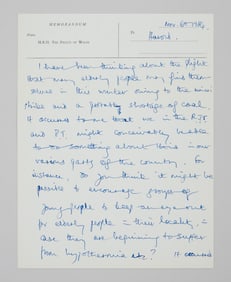 MEMORANDUM
From
H.R.H. The Prince of Wales
To
Nov. 6th 1984
Harold.
I have been thinking about the plight
that many elderly people may find them-
selves in this winter owing to the miners
strike and a possible shortage of coal.
It occurs to me that we in the RJT
and P.T. might conceivably be able
to do something about this in our
various parts of the country. For
instance, do you think it might be
possible to encourage groups of
young people to keep an eye out
for elderly people in their locality, in
case they are beginning to suffer
from hypothermia etc? It occurred